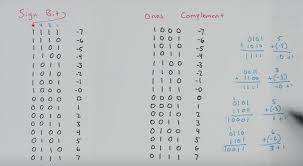 Sign Bit Ones Complement
1 1 1 1 -7 1 0 0 0 -7
1 1 1 0 -6 1 0 0 1 -6
1 1 0 1 -5 1 0 1 0 -5
1 1 0 0 -4 1 0 1 1 -4
1 0 1 1 -3 1 1 0 0 -3
1 0 1 0 -2 1 1 0 1 -2
1 0 0 1 -1 1 1 1 0 -1
1 0 0 0 -0 1 1 1 1 -0
0 0 0 0 0 0 0 0 0 0
0 0 0 1 1 0 0 0 1 1
0 0 1 0 2 0 0 1 0 2
0 0 1 1 3 0 0 1 1 3
0 1 0 0 4 0 1 0 0 4
0 1 0 1 5 0 1 0 1 5
0 1 1 0 6 0 1 1 0 6
0 1 1 1 7 0 1 1 1 7
0101 5
+ 1010 +(-5)
1111 -0
0011 3
+ 1100 +(-3)
1111 -0
0101 5
1100 +(-3)
10001 1